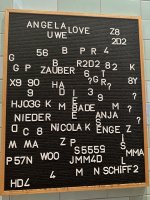 ANGELA LOVE Z8
UWE 202
G 56 B P R 4
G P ZAUBER B R2D2 82 K
X9 90 HA 6 G R 8Y
9 D I 3 ?
HJO3G K M BADE M ?
NIEDER E ANJA
D C 8 NICOLA K S ENGE Z
W MA ZP S5559 I S
P57N WOO JMM4D L MMA
HD4 4 M N SCHIFF 2